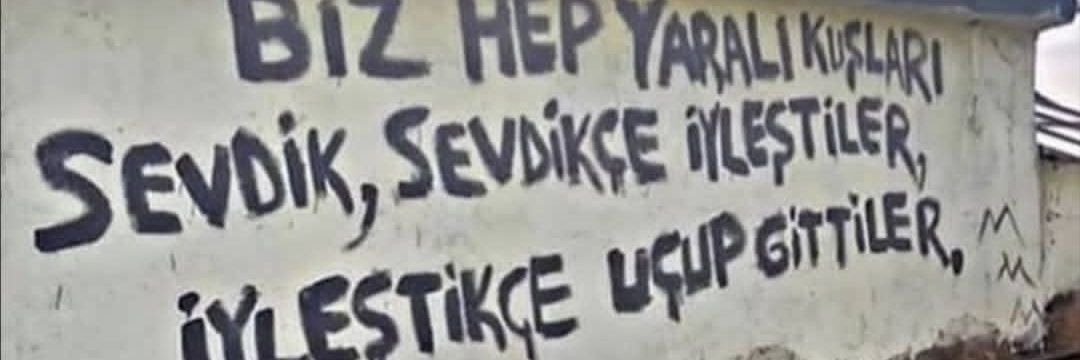 BİZ HEP YARALI KUŞLARI
SEVDİK, SEVDİKÇE İYLEŞTİLER,
İYLEŞTİKÇE UÇUP GİTTİLER.